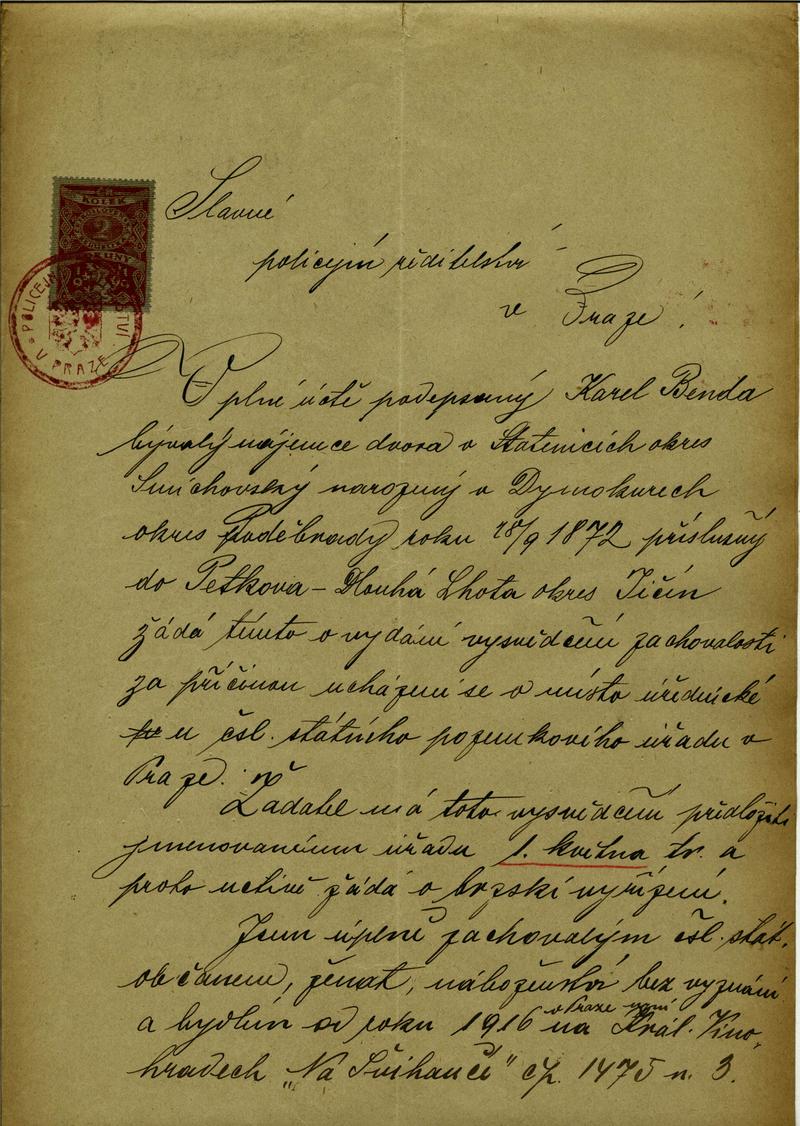 KOLEK
2
POLICEJNÍ
V PRAZE
Slavné
policejní ředitelství
v Praze!
V plné úctě podepsaný Karel Benda
bývalý nájemce dvora v Statenicích okres
Smíchovský narozený v Dymokurech
okres Poděbrady roku 18/9 1872 příslušný
do Petkova – Dlouhá Lhota okres Jičín
žádá tímto o vydání vysvědčení zachovalosti
za příčinou ucházení se o místo úřednické
u čsl. státního pozemkového úřadu v
Praze.
Žadatel má toto vysvědčení předložiti
jmenovanému úřadu 1. května tr. a
proto uctivě žádá o brzské vyřízení.
Jsem úplně zachovalým čsl. stát.
občanem, ženat, náboženství bez vyznání
a bydlím od roku 1916 v Praze nyní na Král. Vino-
hradech „Na Švihance" čp. 1475 n. 3.